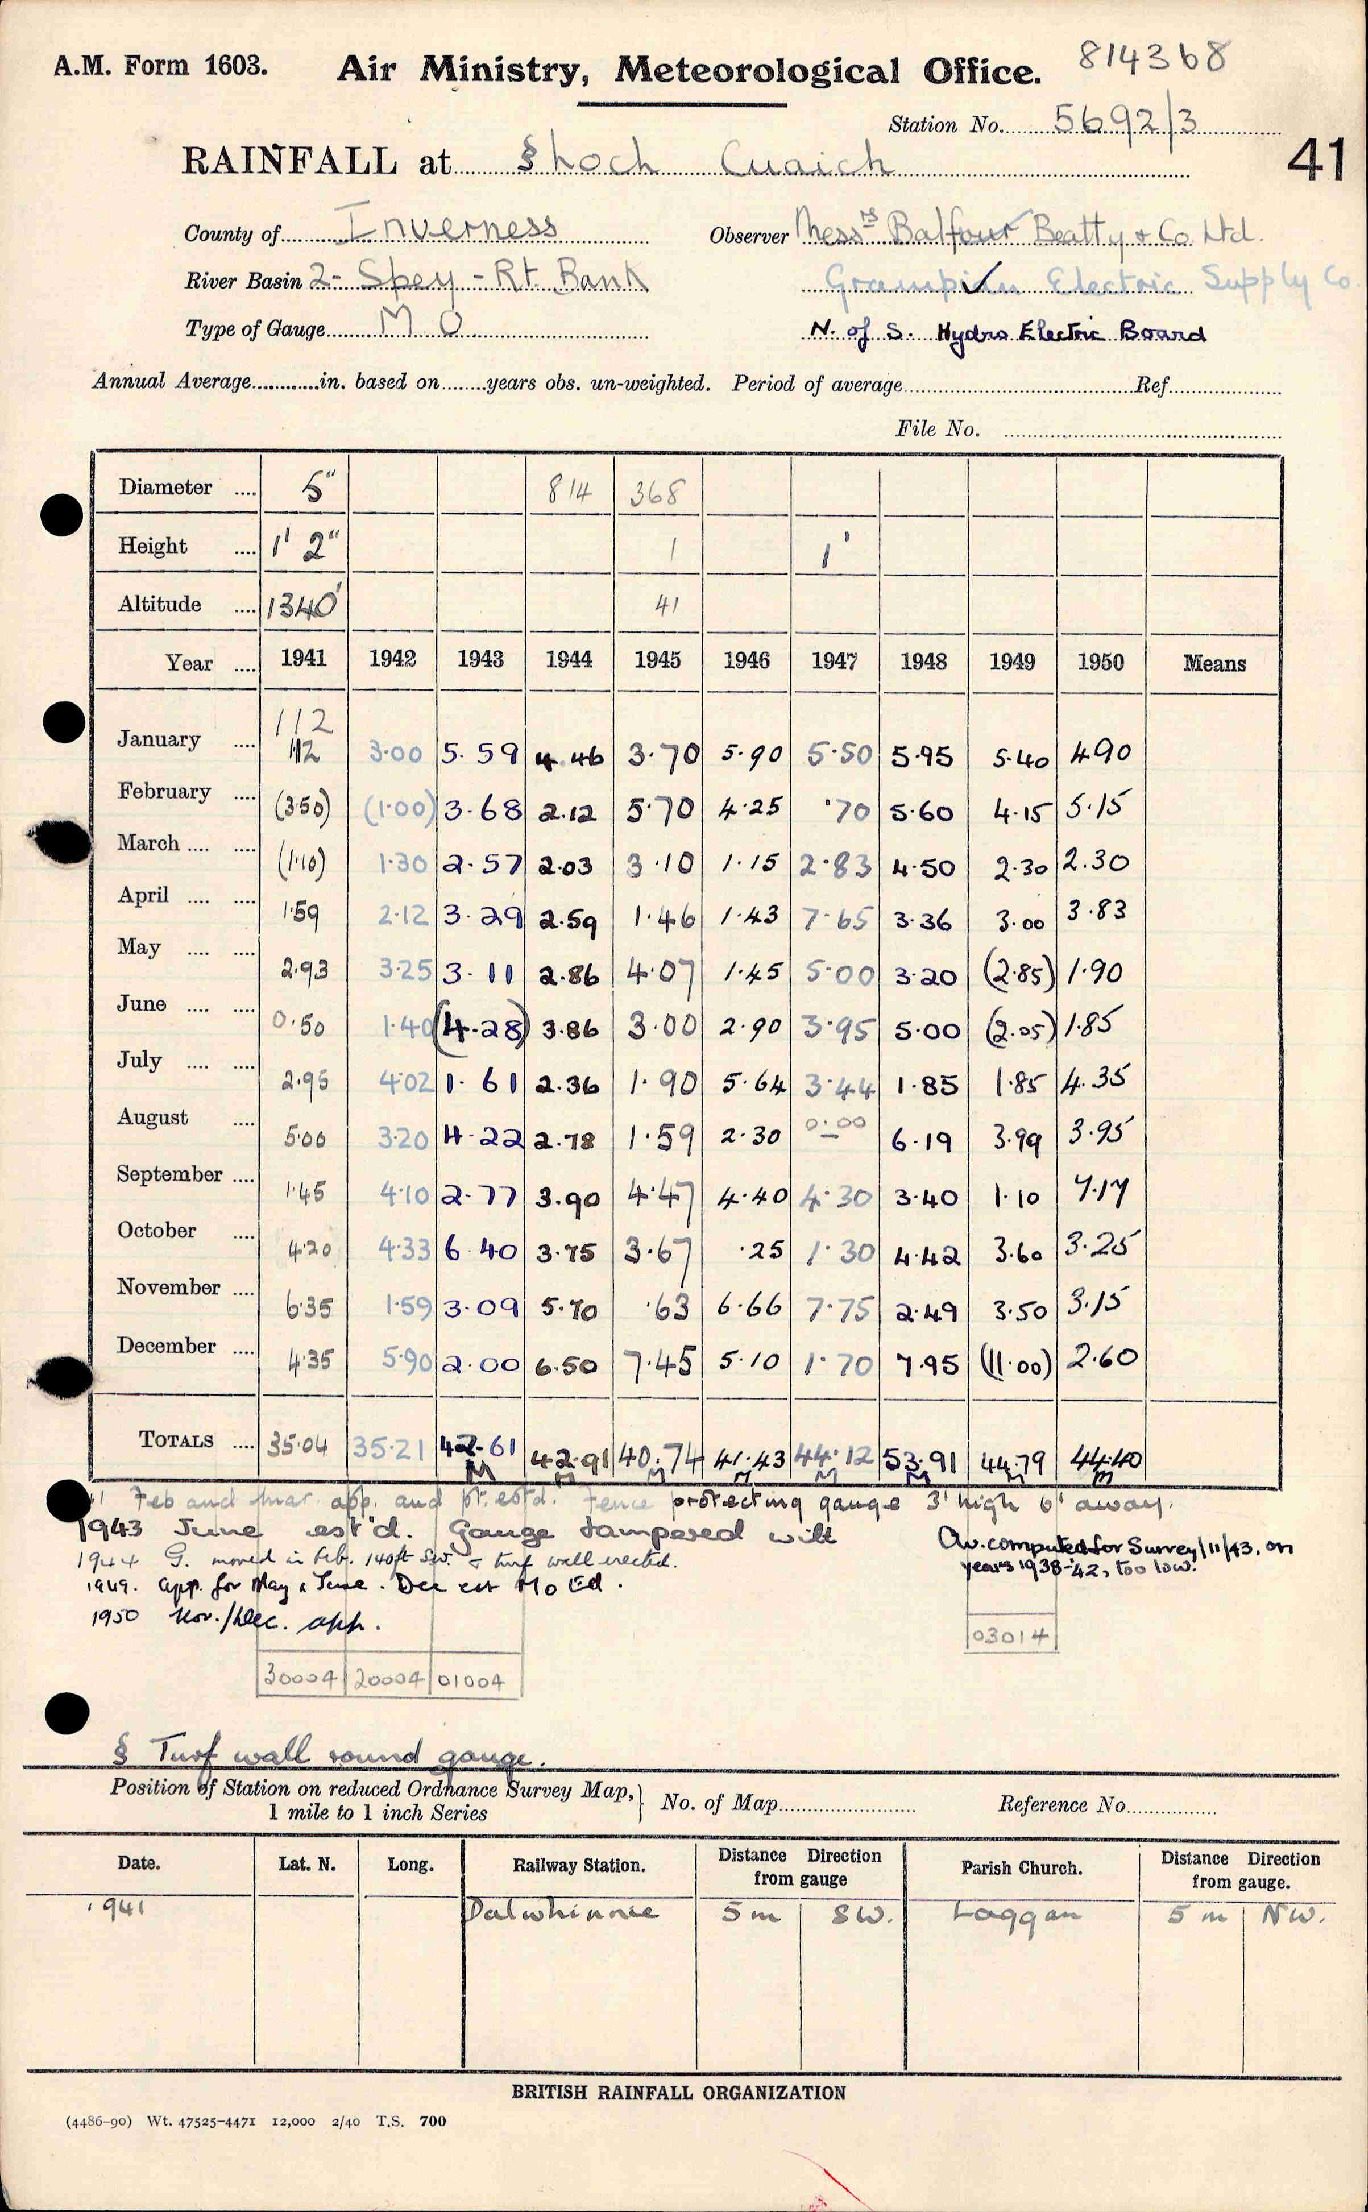 A.M. Form 1603. Air Ministry, Meteorological Office. 814368
Station No. 5692/3
RAINFALL at § Loch Cuaich 41
County of Inverness Observer Messrs Balfour Beatty & Co Ltd.
River Basin 2 - Spey - Rt. Bank Grampian Electric Supply Co.
Type of Gauge M O N. of S. Hydro Electric Board
Annual Average in. based on years obs. un-weighted. Period of average Ref
File No.
Diameter 5" 814 368
Height 1' 2" 1 1'
Altitude 1340' 41
Year 1941 1942 1943 1944 1945 1946 1947 1948 1949 1950 Means
112
January 112 3·00 5.59 4.46 3.70 5.90 5.50 5.95 5.40 4.90
February (3.50) (1·00) 3.68 2.12 5.70 4.25 ·70 5.60 4.15 5.15
March (1.10) 1.30 2.57 2.03 3.10 1.15 2.83 4.50 2.30 2.30
April 1.59 2.12 3.29 2.59 1.46 1.43 7.65 3.36 3.00 3.83
May 2.93 3.25 3.11 2.86 4.07 1.45 5.00 3.20 (2.85) 1.90
June 0.50 1.40 (4.28) 3.86 3.00 2.90 3.95 5.00 (2.05) 1.85
July 2.95 4.02 1.61 2.36 1.90 5.64 3.44 1.85 1.85 4.35
August 5.00 3.20 4.22 2.78 1.59 2.30 0.00 6.19 3.99 3.95
September 1.45 4.10 2.77 3.90 4.47 4.40 4.30 3.40 1.10 7.17
October 4.20 4.33 6.40 3.75 3.67 .25 1.30 4.42 3.60 3.25
November 6.35 1.59 3.09 5.70 .63 6.66 7.75 2.49 3.50 3.15
December 4.35 5.90 2.00 6.50 7.45 5.10 1.70 7.95 (11.00) 2.60
TOTALS 35.04 35.21 42.61 42.91 40.74 41.43 44.12 53.91 44.79 44.40
M M M M M M M M
Feb and Mar. app. and pt. estd. Fence protecting gauge 3' high 6' away.
1943 June est'd. Gauge tampered with
1944 G. moved in Feb. 140ft SW. & turf wall erected.
1949. app. for May & June. Dec est Mo Ed.
1950 Nov./Dec. app.
Av. computed for Survey/11/43, on
years 1938-42, too low.
03014
30004 20004 01004
§ Turf wall round gauge.
Position of Station on reduced Ordnance Survey Map, 1 mile to 1 inch Series No. of Map Reference No.
Date. Lat. N. Long. Railway Station. Distance Direction from gauge Parish Church. Distance Direction from gauge.
1941 Dalwhinnie 5 m SW. Laggan 5 m NW.
BRITISH RAINFALL ORGANIZATION
(4486-90) Wt. 47525-4471 12,000 2/40 T.S. 700